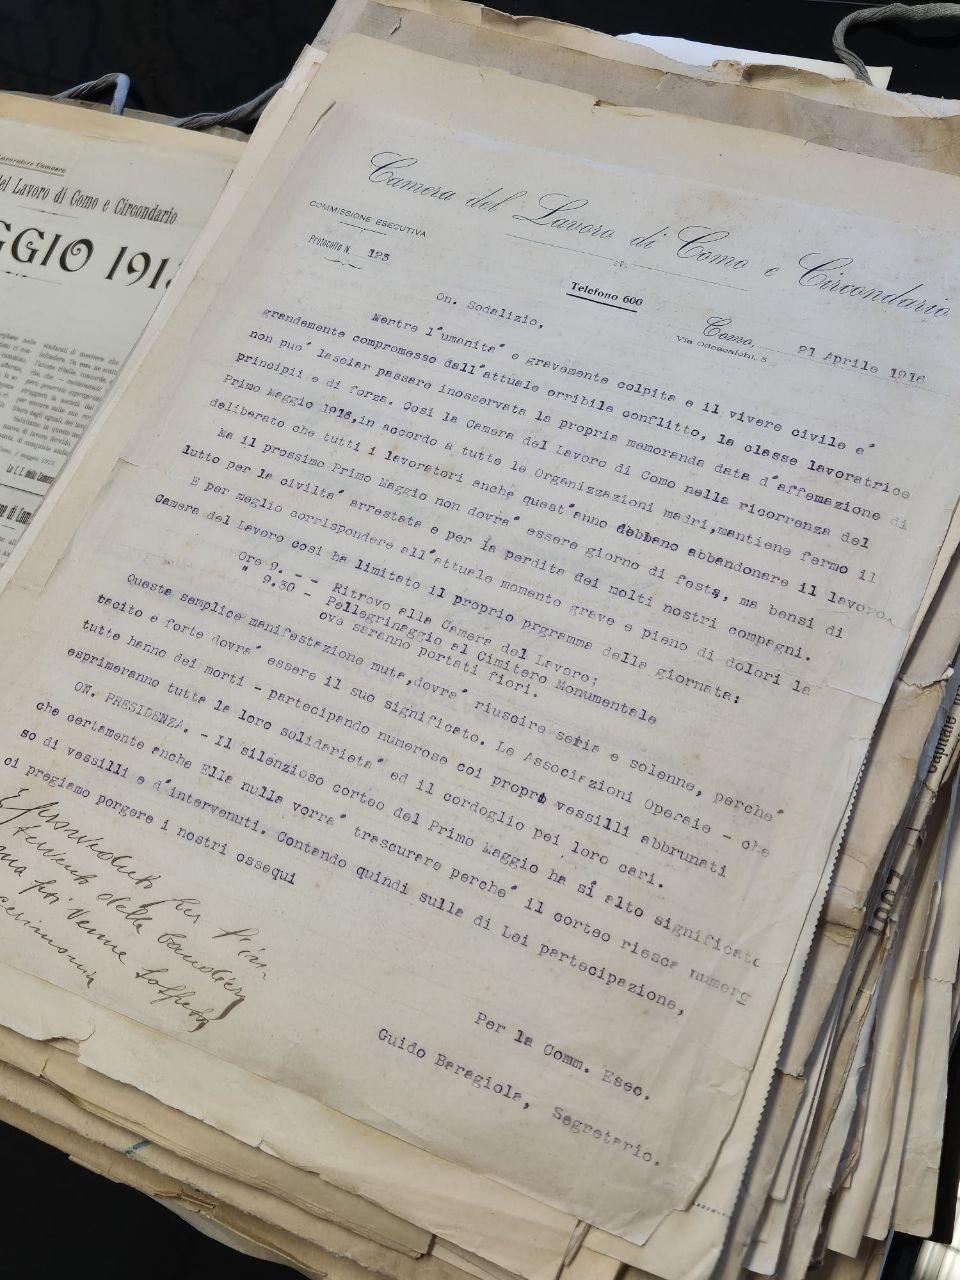 Camera del Lavoro di Como e Circondario
COMMISSIONE ESECUTIVA
Protocollo N. 123
Telefono 600
Como, 21 Aprile 1916
Via Odescalchi, 5
On. Sodalizio,
Mentre l'umanita' e gravemente colpita e il vivere civile e'
grandemente compromesso dall'attuale orribila conflitto, la classe lavoratrice
non puo' lasciar passare inosservata la propria memoranda data d'affemazione di
principii e di forza. Cosi la Camera del Lavoro di Como nella ricorrenza del
Primo Maggio 1916,in accordo a tutte le Organizzazioni madri,mantiene fermo il
deliberato che tutti i lavoratori anche quest'anno debbano abbandonare il lavoro.
Ma il prossimo Primo Maggio non dovra' essere giorno di festa, ma bensi di
lutto per la civilta' arrestata e per la perdita dei molti nostri compagni.
E per meglio corrispondere all'attuale momento grave e pieno di dolori la
Camera del Lavoro cosi ha limitato il proprio prgramma della giornata:
Ore 9. - - Ritrovo alla Camera del Lavoro;
" 9.30 - Pellegrinaggio al Cimitero Monumentale
ove saranno portati fiori.
Questa semplice manifestazione muta,dovra' riuscire seria e solenne, perche'
tacito e forte dovra' essere il suo significato. Le Associazioni Operaie - che
tutte hanno dei morti - partecipando numerose coi propri vessilli abbrunati
esprimeranno tutta la loro solidarieta' ed il cordoglio pei loro cari.
ON. PRESIDENZA. - Il silenzioso corteo del Primo Maggio ha sí alto significato
che certamente anche Ella nulla vorra' trascurare perche' il corteo riesca numero
so di vessilli e d'intervenuti. Contando quindi sulla di Lei partecipazione,
ci pregiamo porgere i nostri ossequi
Per la Comm. Esec.
Guido Baragiola, Segretario.
per
della bandiera
ma poi venne sospesa
cerimonia
del Lavoro di Como e Circondario
GGIO 191
Capitale
1907